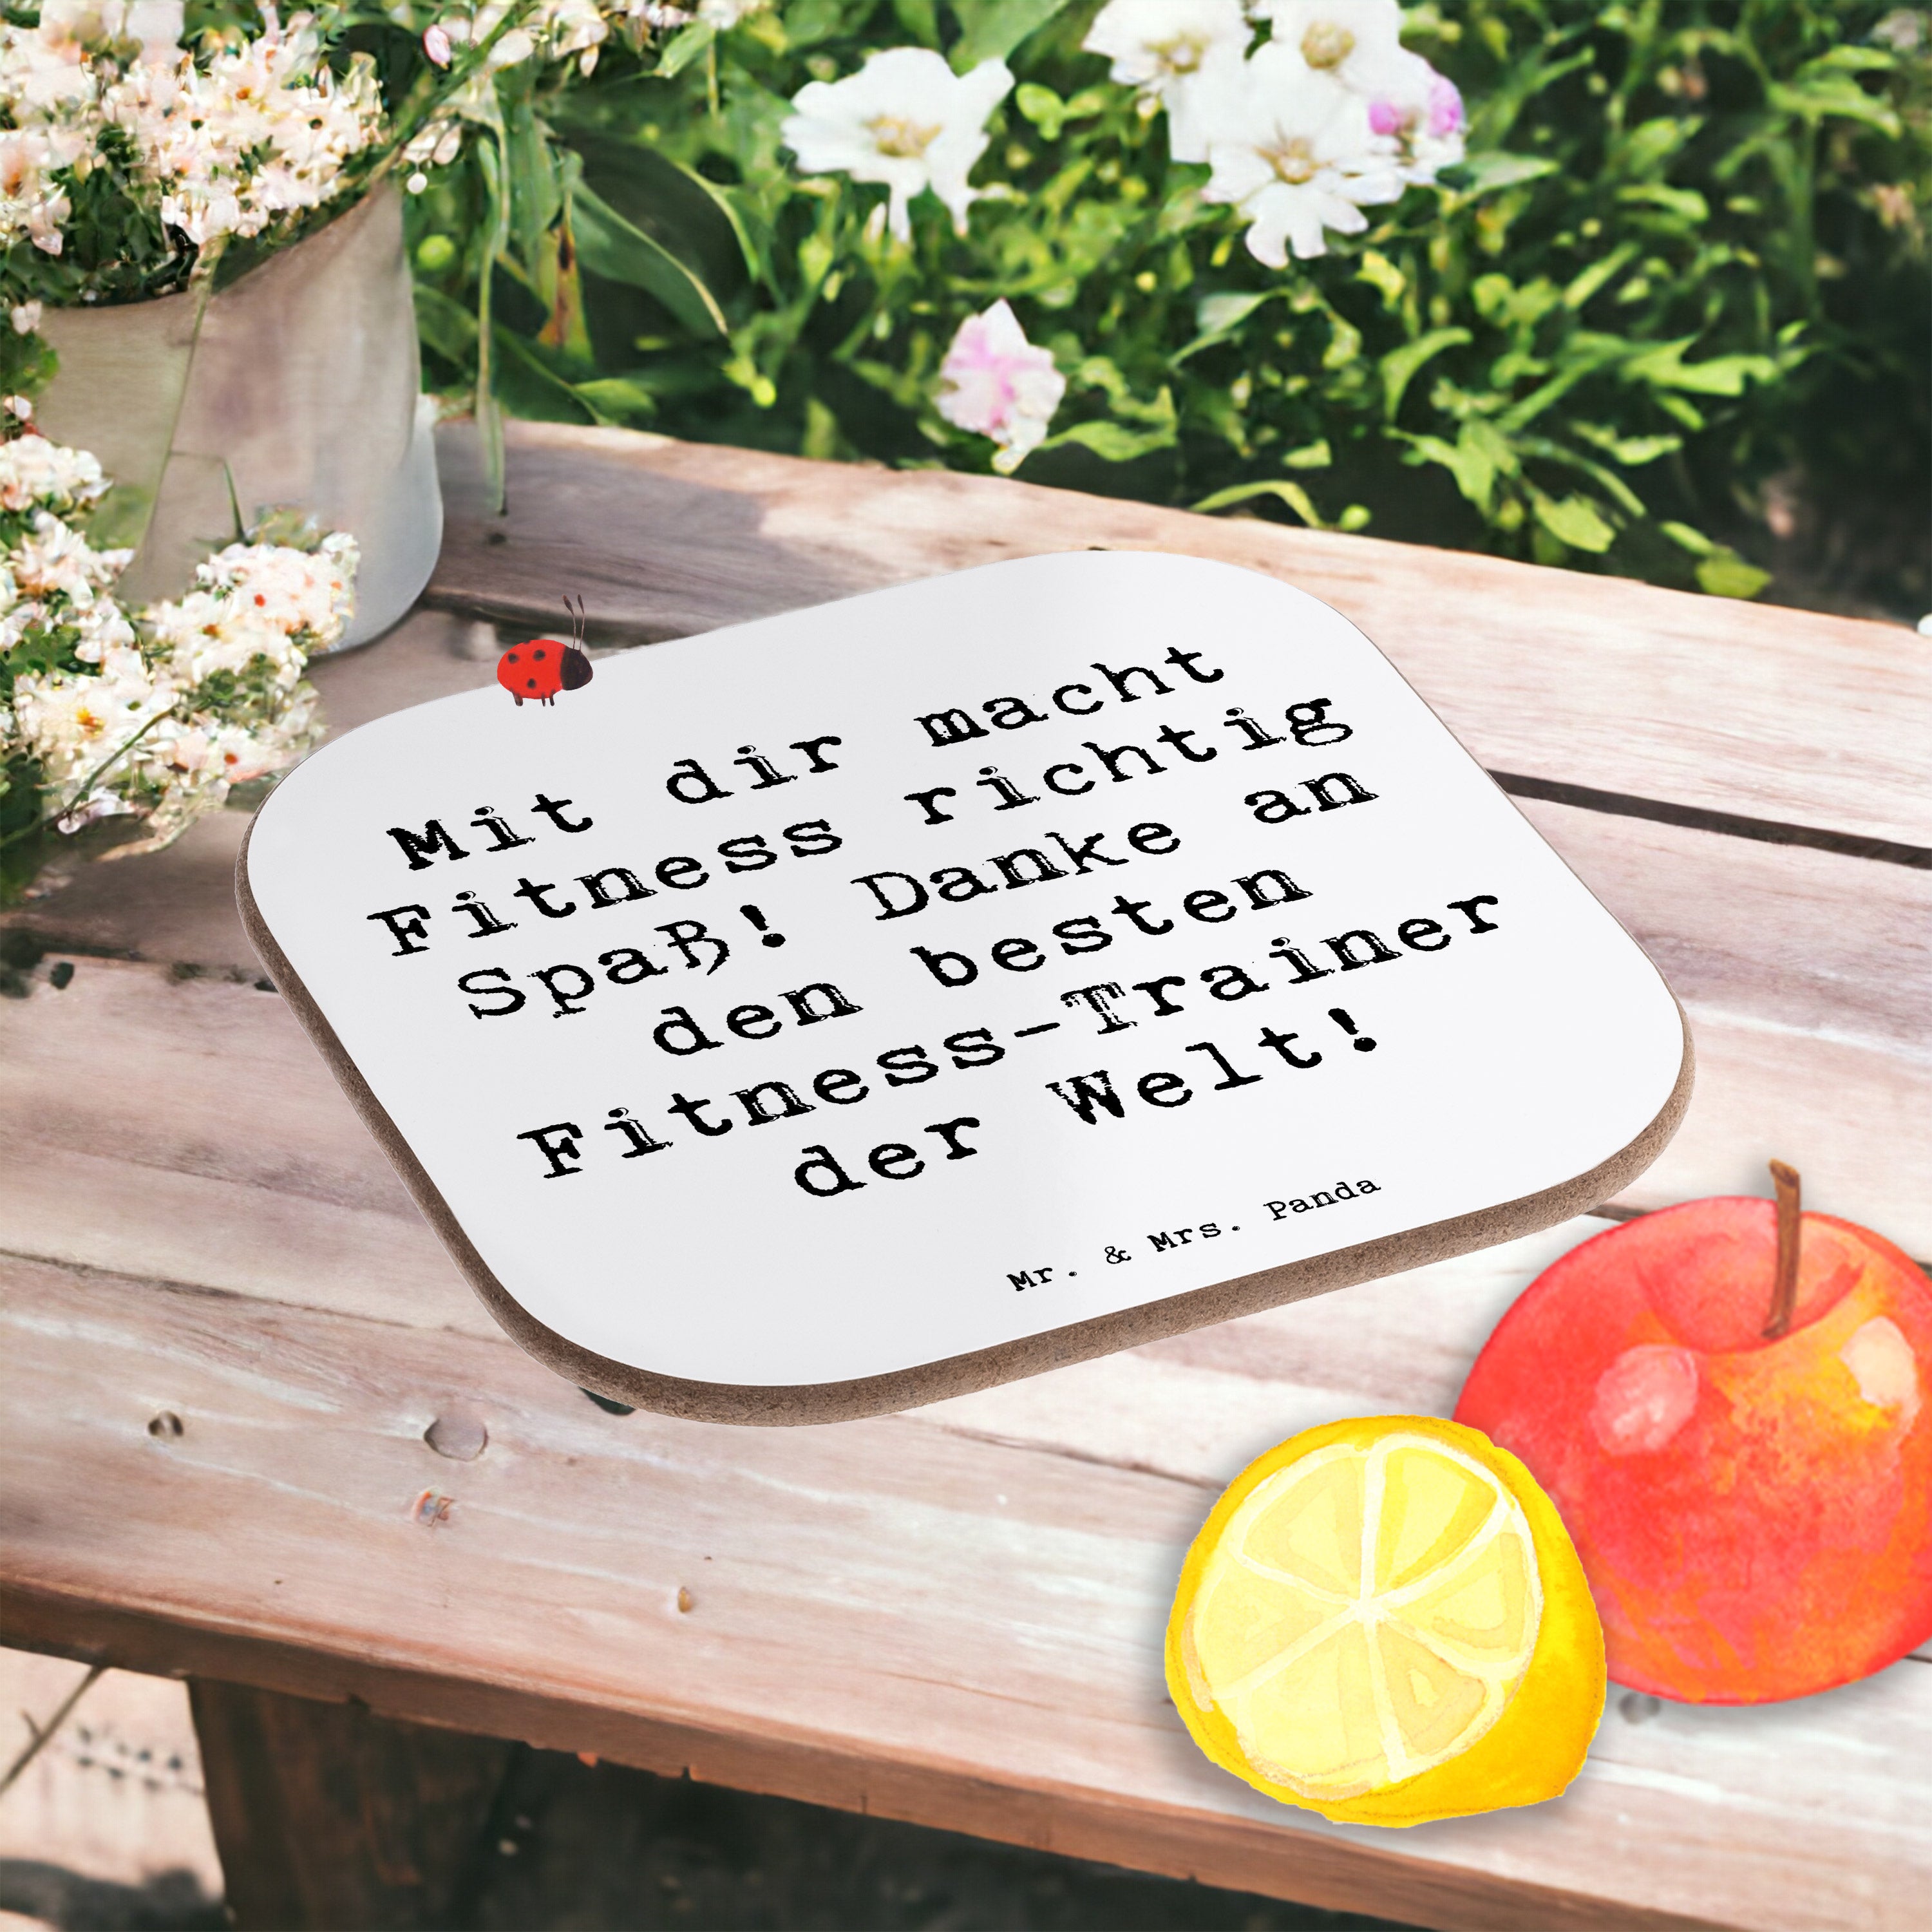 Mit dir macht
Fitness richtig
Spaß! Danke an
den besten
Fitness-Trainer
der Welt!
Mr. & Mrs. Panda